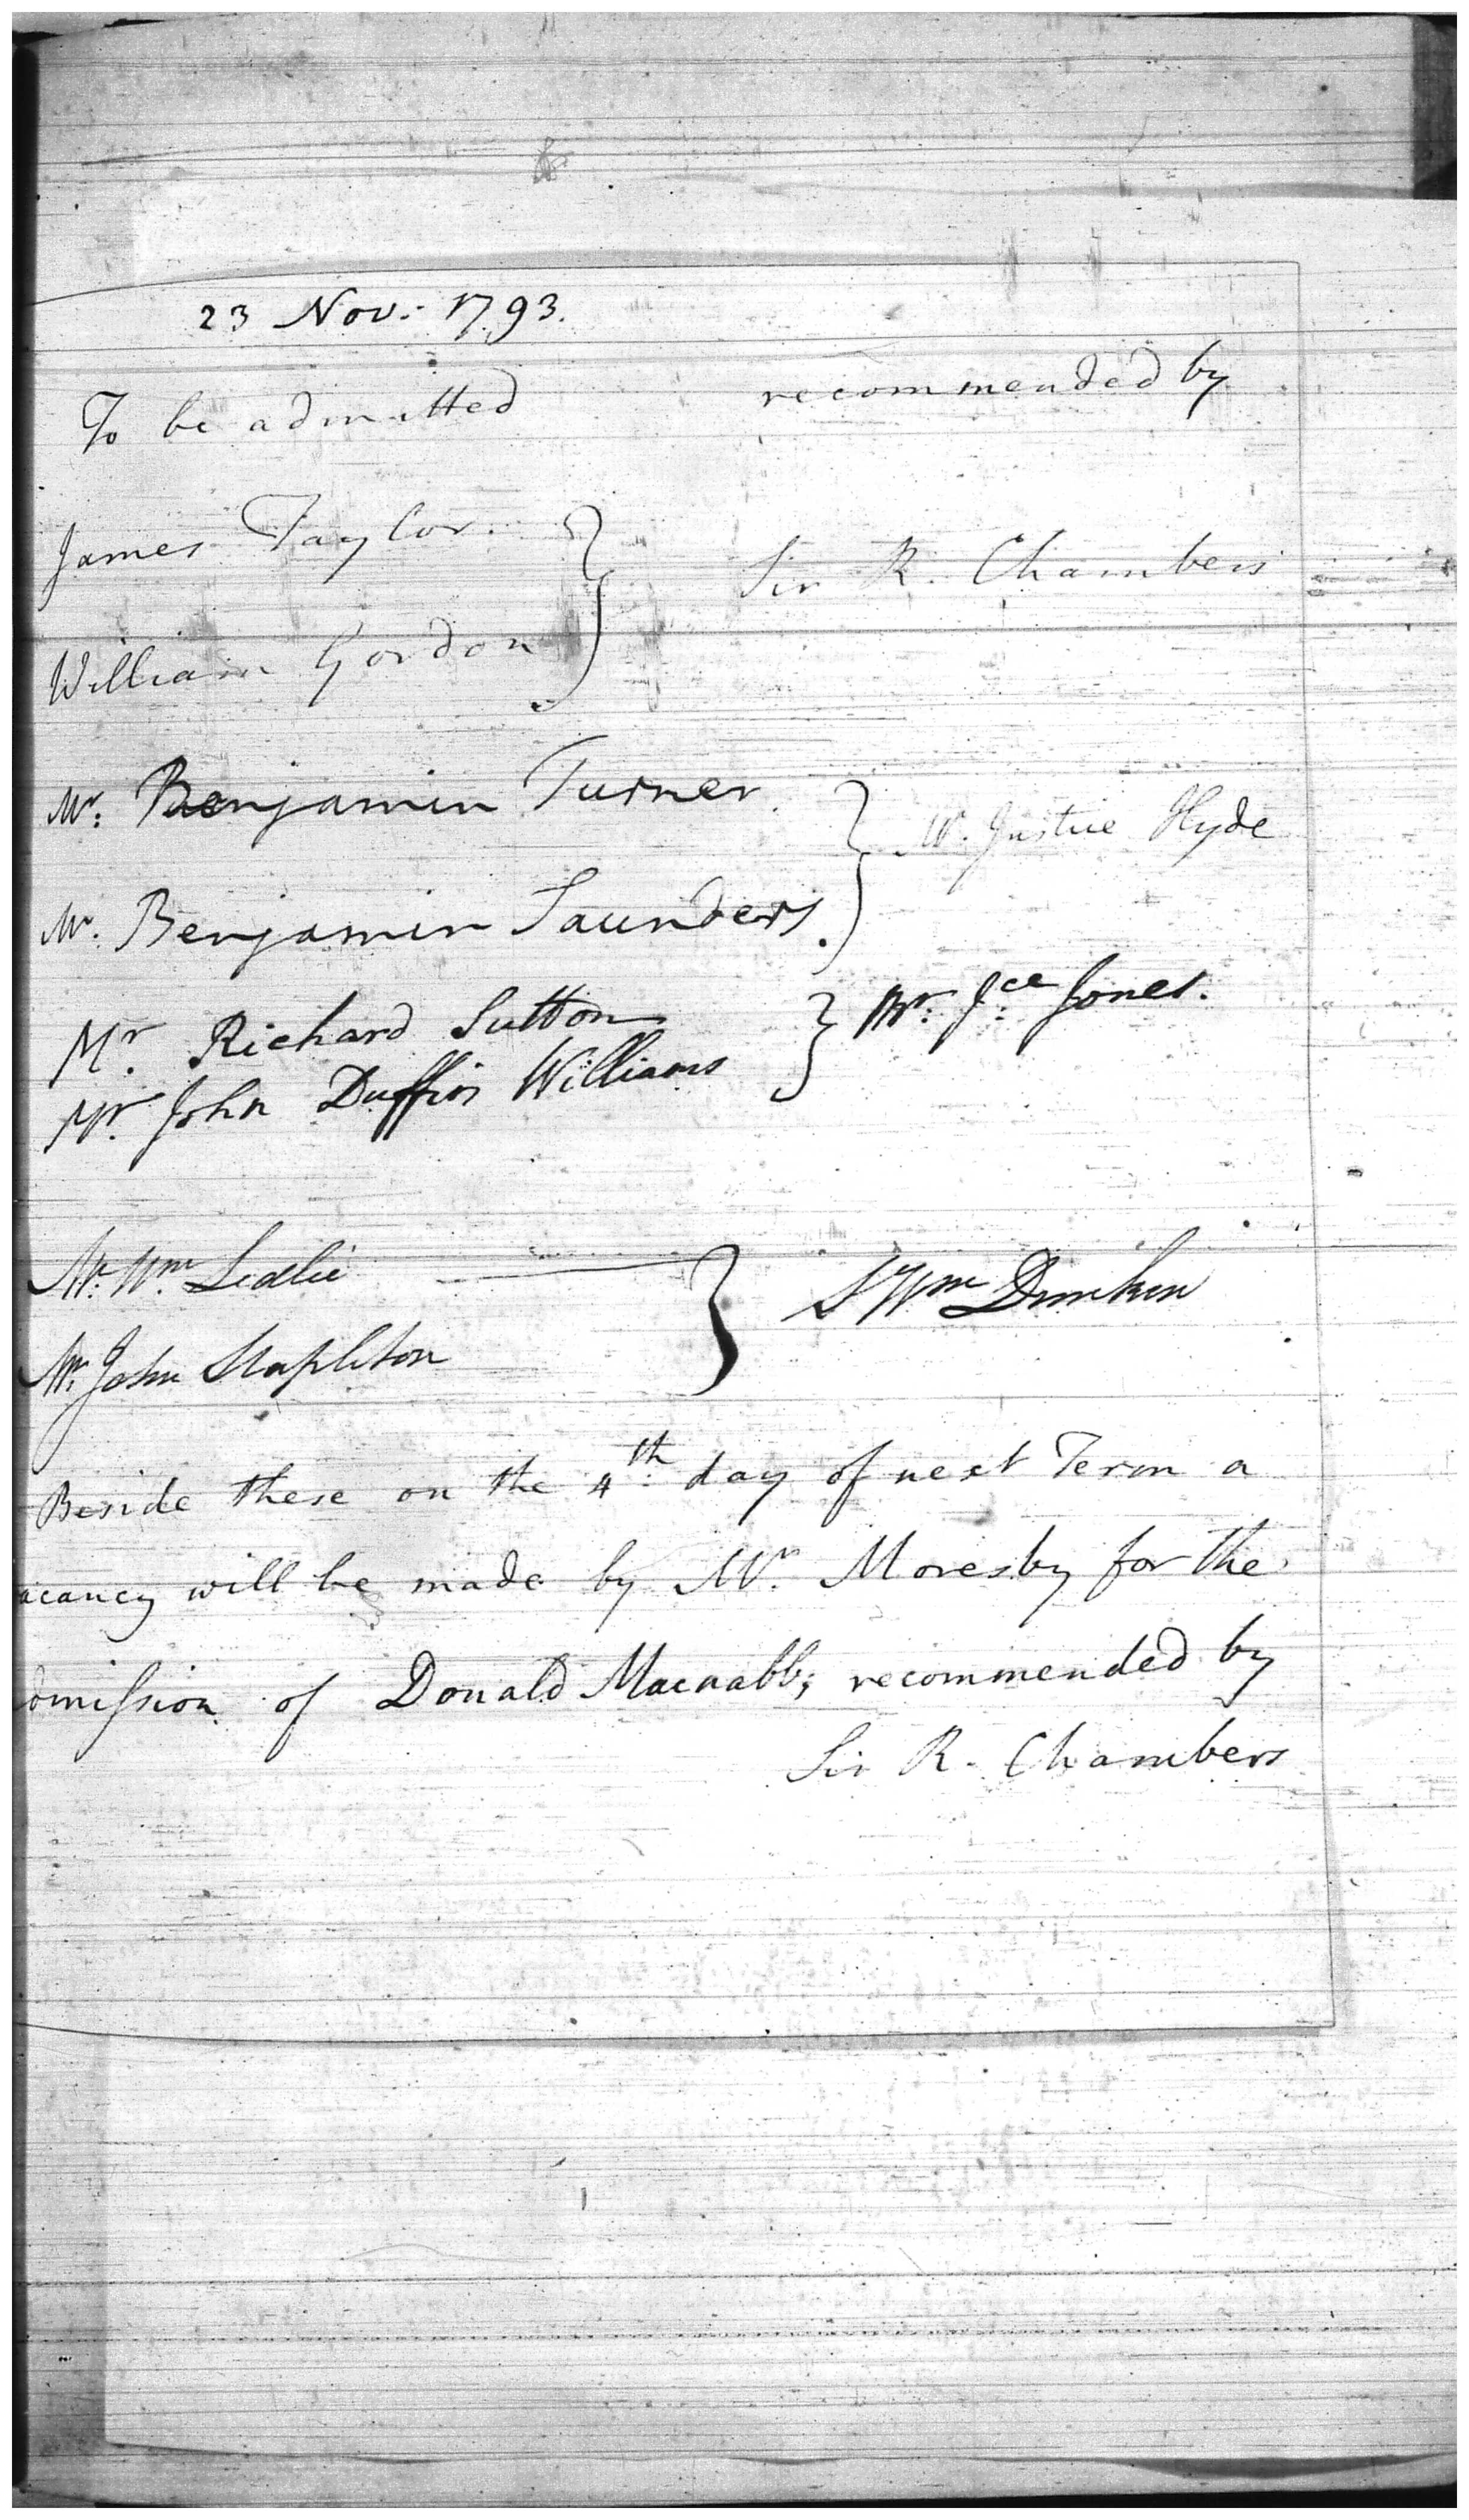 23 Nov: 1793.
To be admitted recommended by
James Taylor.
Sir R. Chambers
William Gordon
Mr. Benjamin Turner.
Mr. Justice Hyde
Mr. Benjamin Saunders.
Mr. Richard Sutton
Mr. Jce Jones.
Mr. John Duffin Williams
Mr. Wm. Ledlie
S Wm Dunkin
Mr. John Stapleton
Beside these on the 4th day of next Term a
acancy will be made by Mr. Moresby for the
dmission of Donald Macnabb; recommended by
Sir R. Chambers